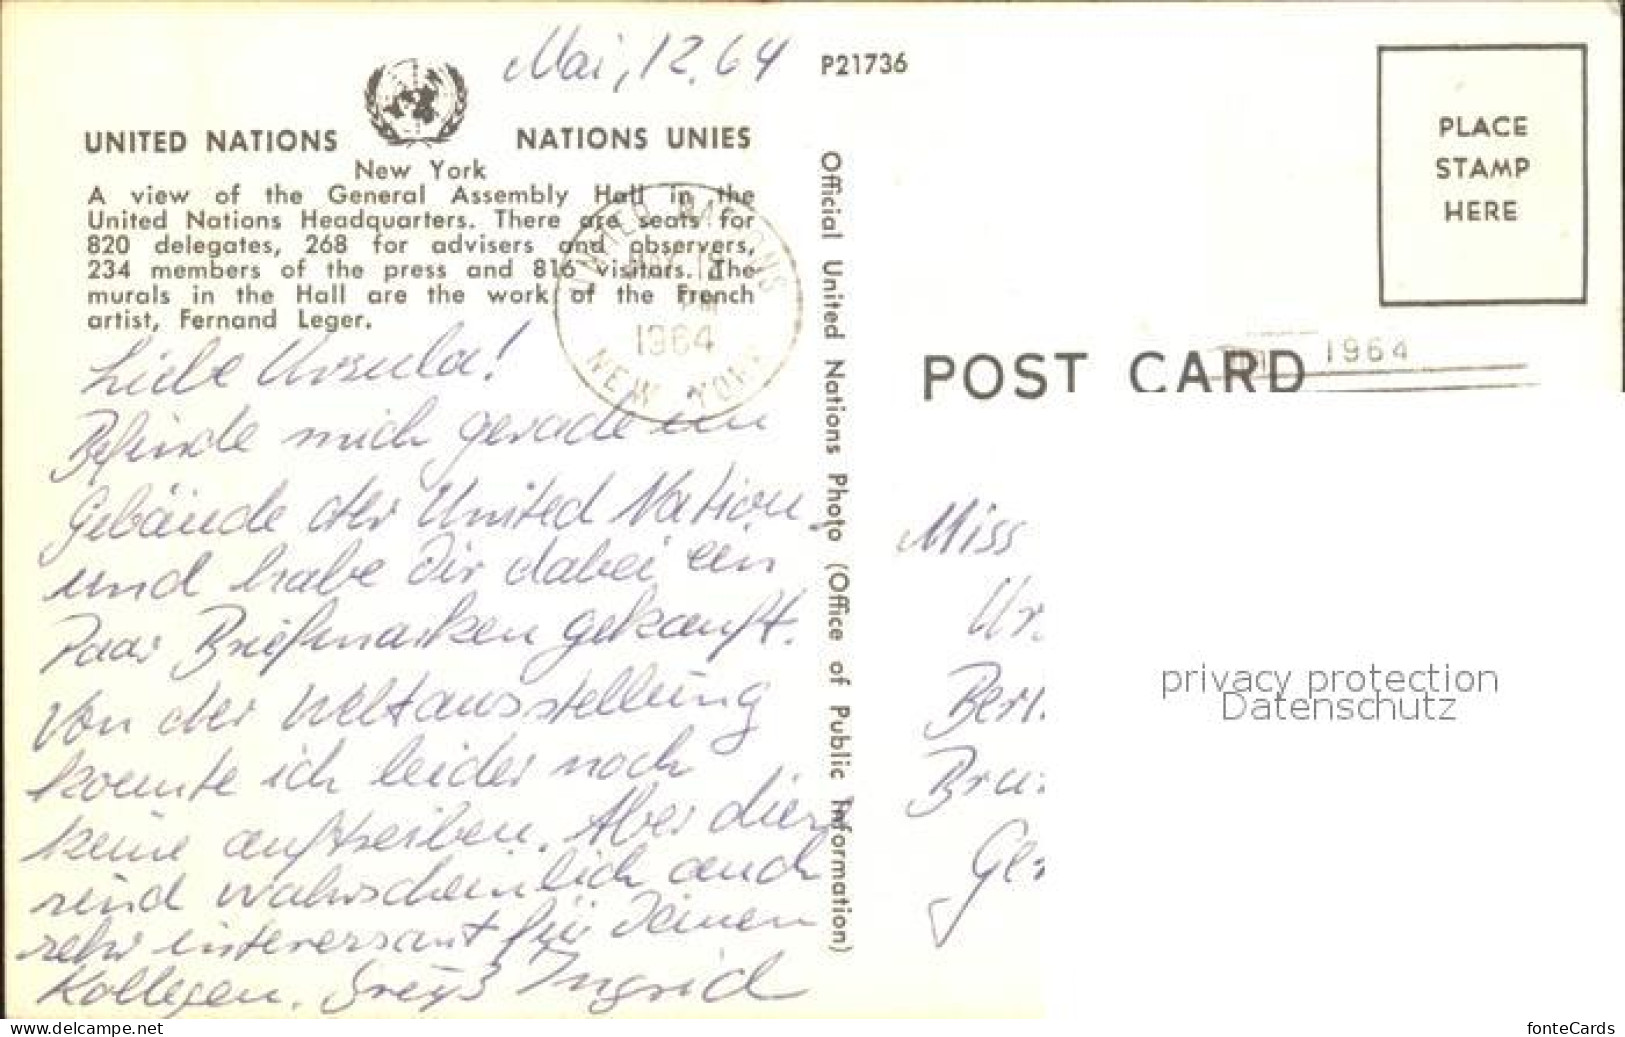 Mai, 12. 64
P21736
UNITED NATIONS NATIONS UNIES
New York
A view of the General Assembly Hall in the
United Nations Headquarters. There are seats for
820 delegates, 268 for advisers and observers,
234 members of the press and 816 visitors. The
murals in the Hall are the work of the French
artist, Fernand Leger.
UNITED NATIONS
1964
NEW YORK
Liebe Ursula!
Befinde mich gerade im
Gebäude der United Nation.
und habe Dir dabei ein
Paar Briefmarken gekauft.
Von der Weltausstellung
konnte ich leider noch
keine auftreiben. Aber die
sind wahrscheinlich auch
sehr interessant für Deinen
Kollegen. Gruß Ingrid
Official United Nations Photo (Office of Public Information)
PLACE
STAMP
HERE
1964
POST CARD
Miss
Ur
Berl
Bra
Ger
privacy protection
Datenschutz
www.delcampe.net
fonteCards